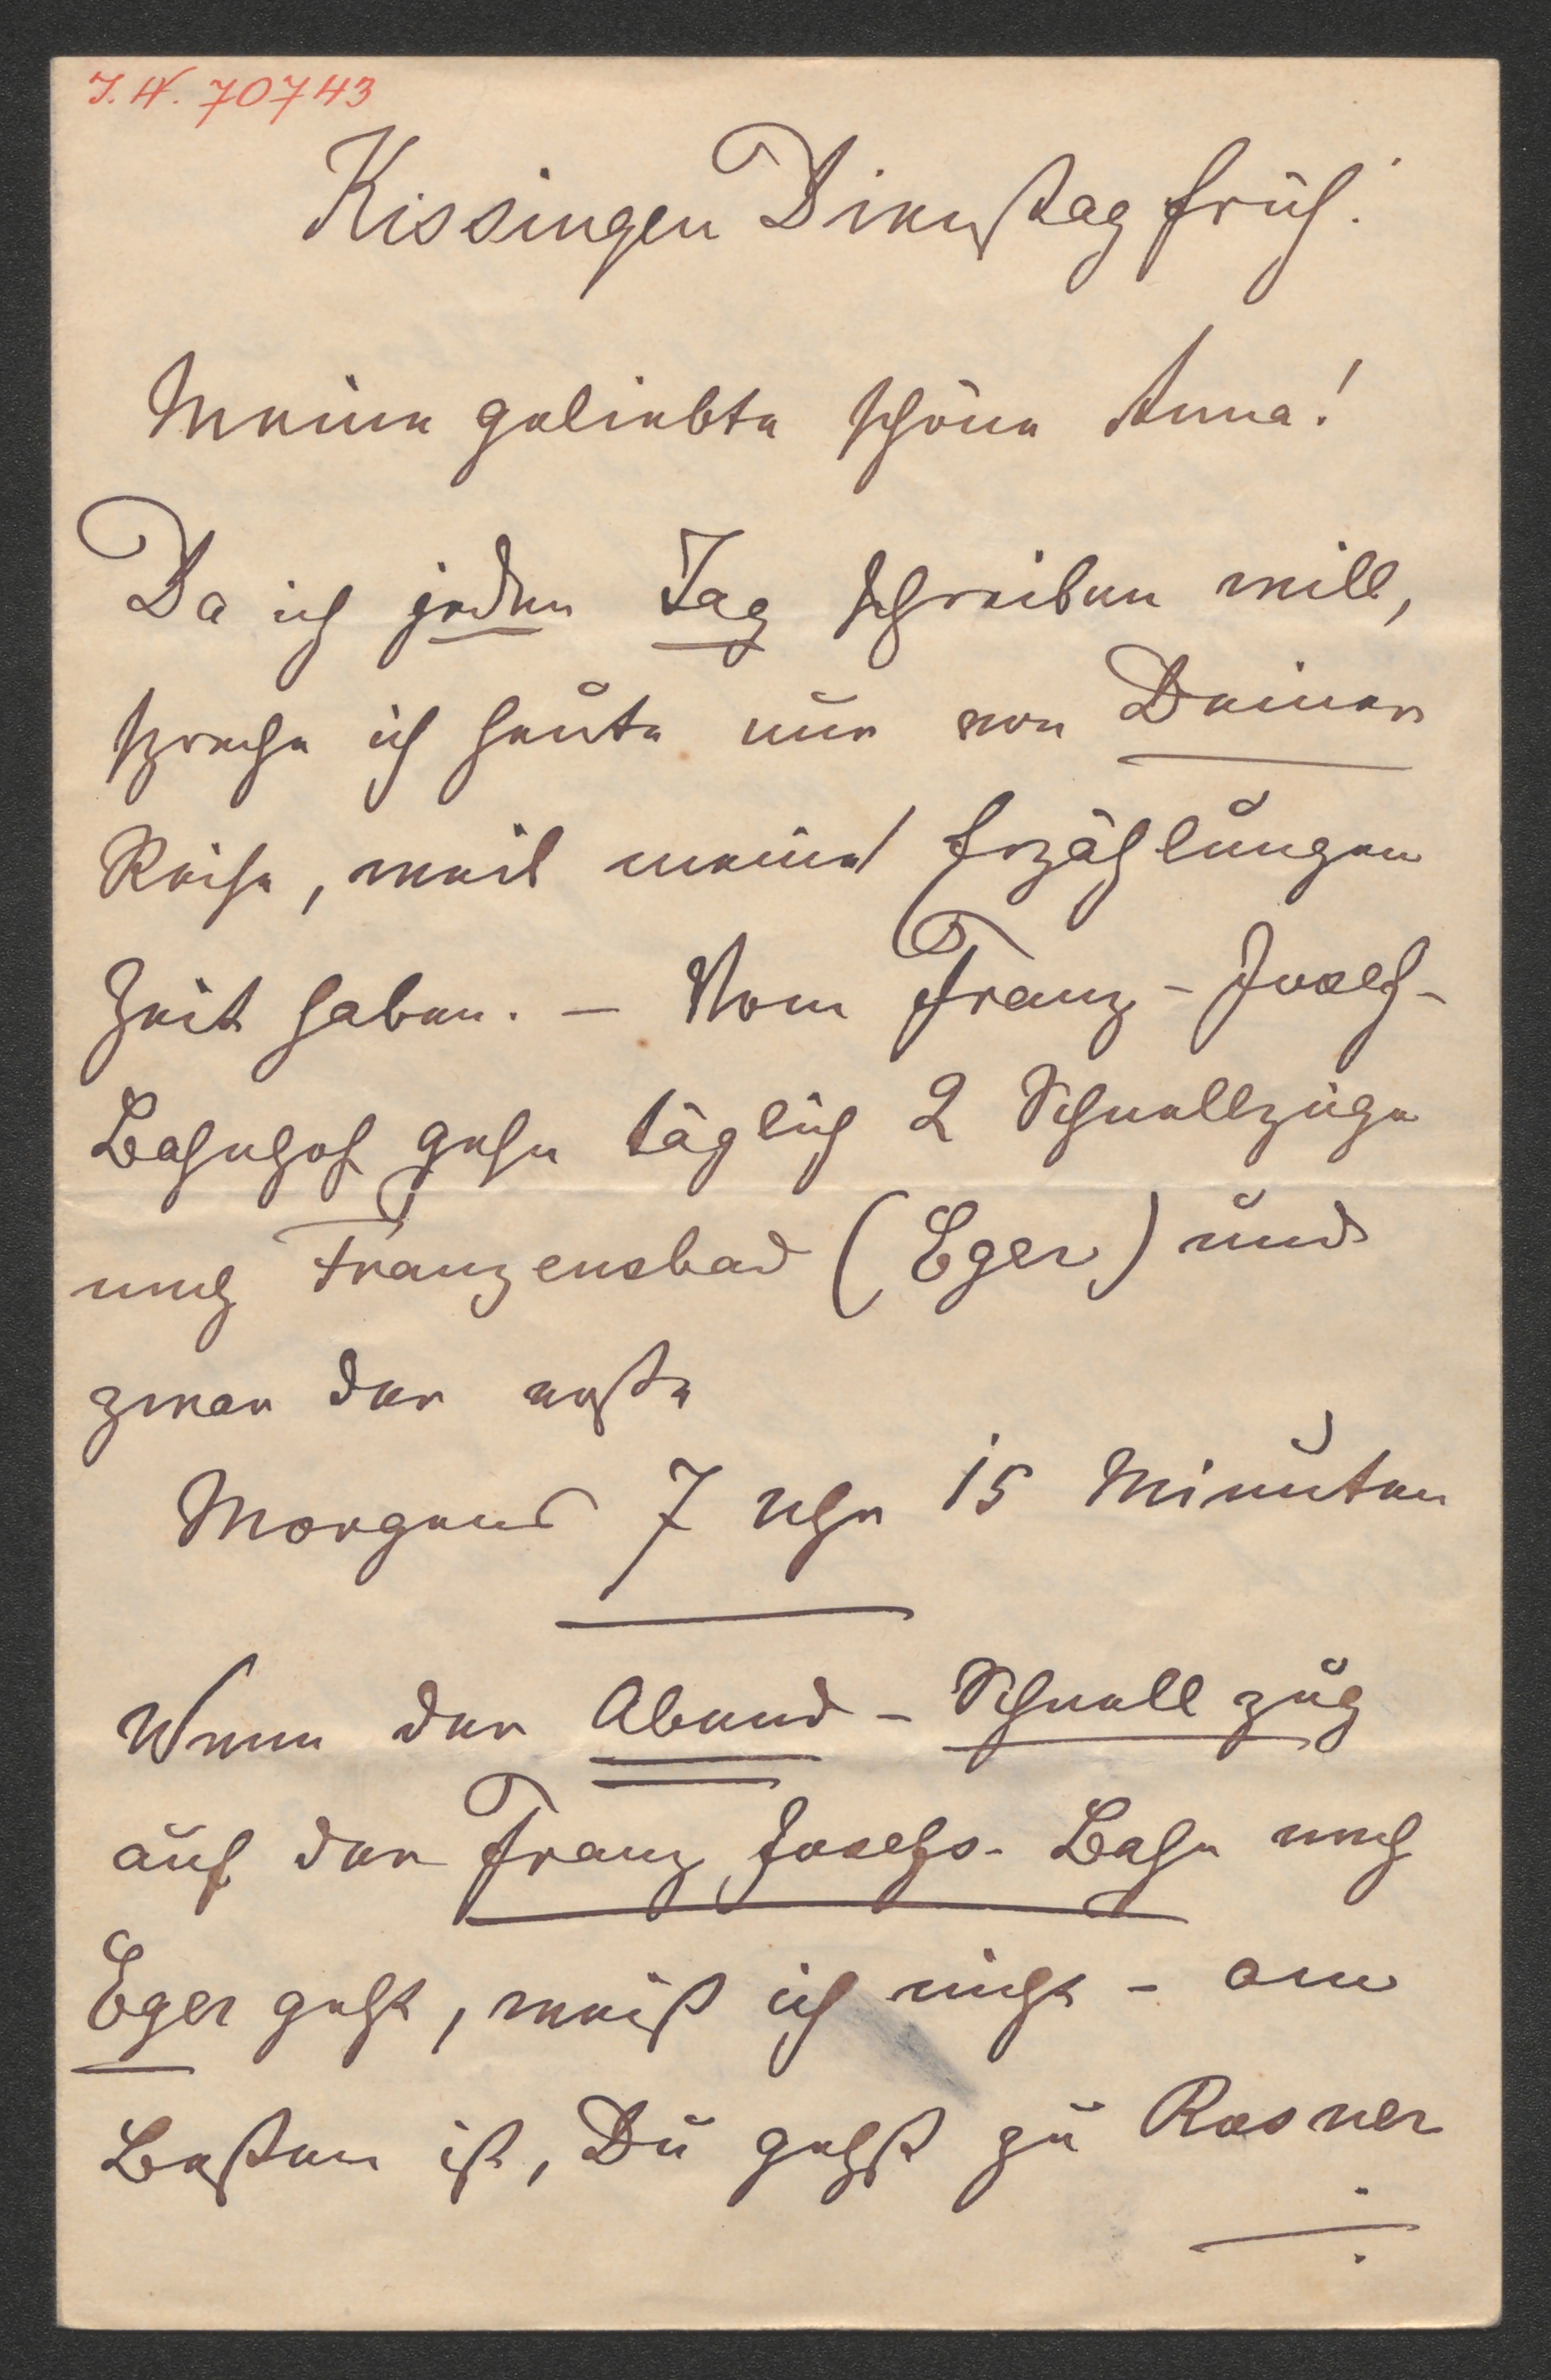 J. N. 70743
Kissingen Dienstag früh.
Meine geliebte schöne Anna!
Da ich jeden Tag schreiben will,
spreche ich heute nur von Deiner
Reise, weil meine Erzählungen
Zeit haben. – Vom Franz-Josef-
Bahnhof gehn täglich 2 Schnellzüge
nach Franzensbad (Eger) und
zwar der erste
Morgens 7 Uhr 15 Minuten
Wenn der Abend-Schnellzug
auf der Franz Josefs-Bahn nach
Eger geht, weiß ich nicht – am
Besten ist, Du gehst zu Rosner